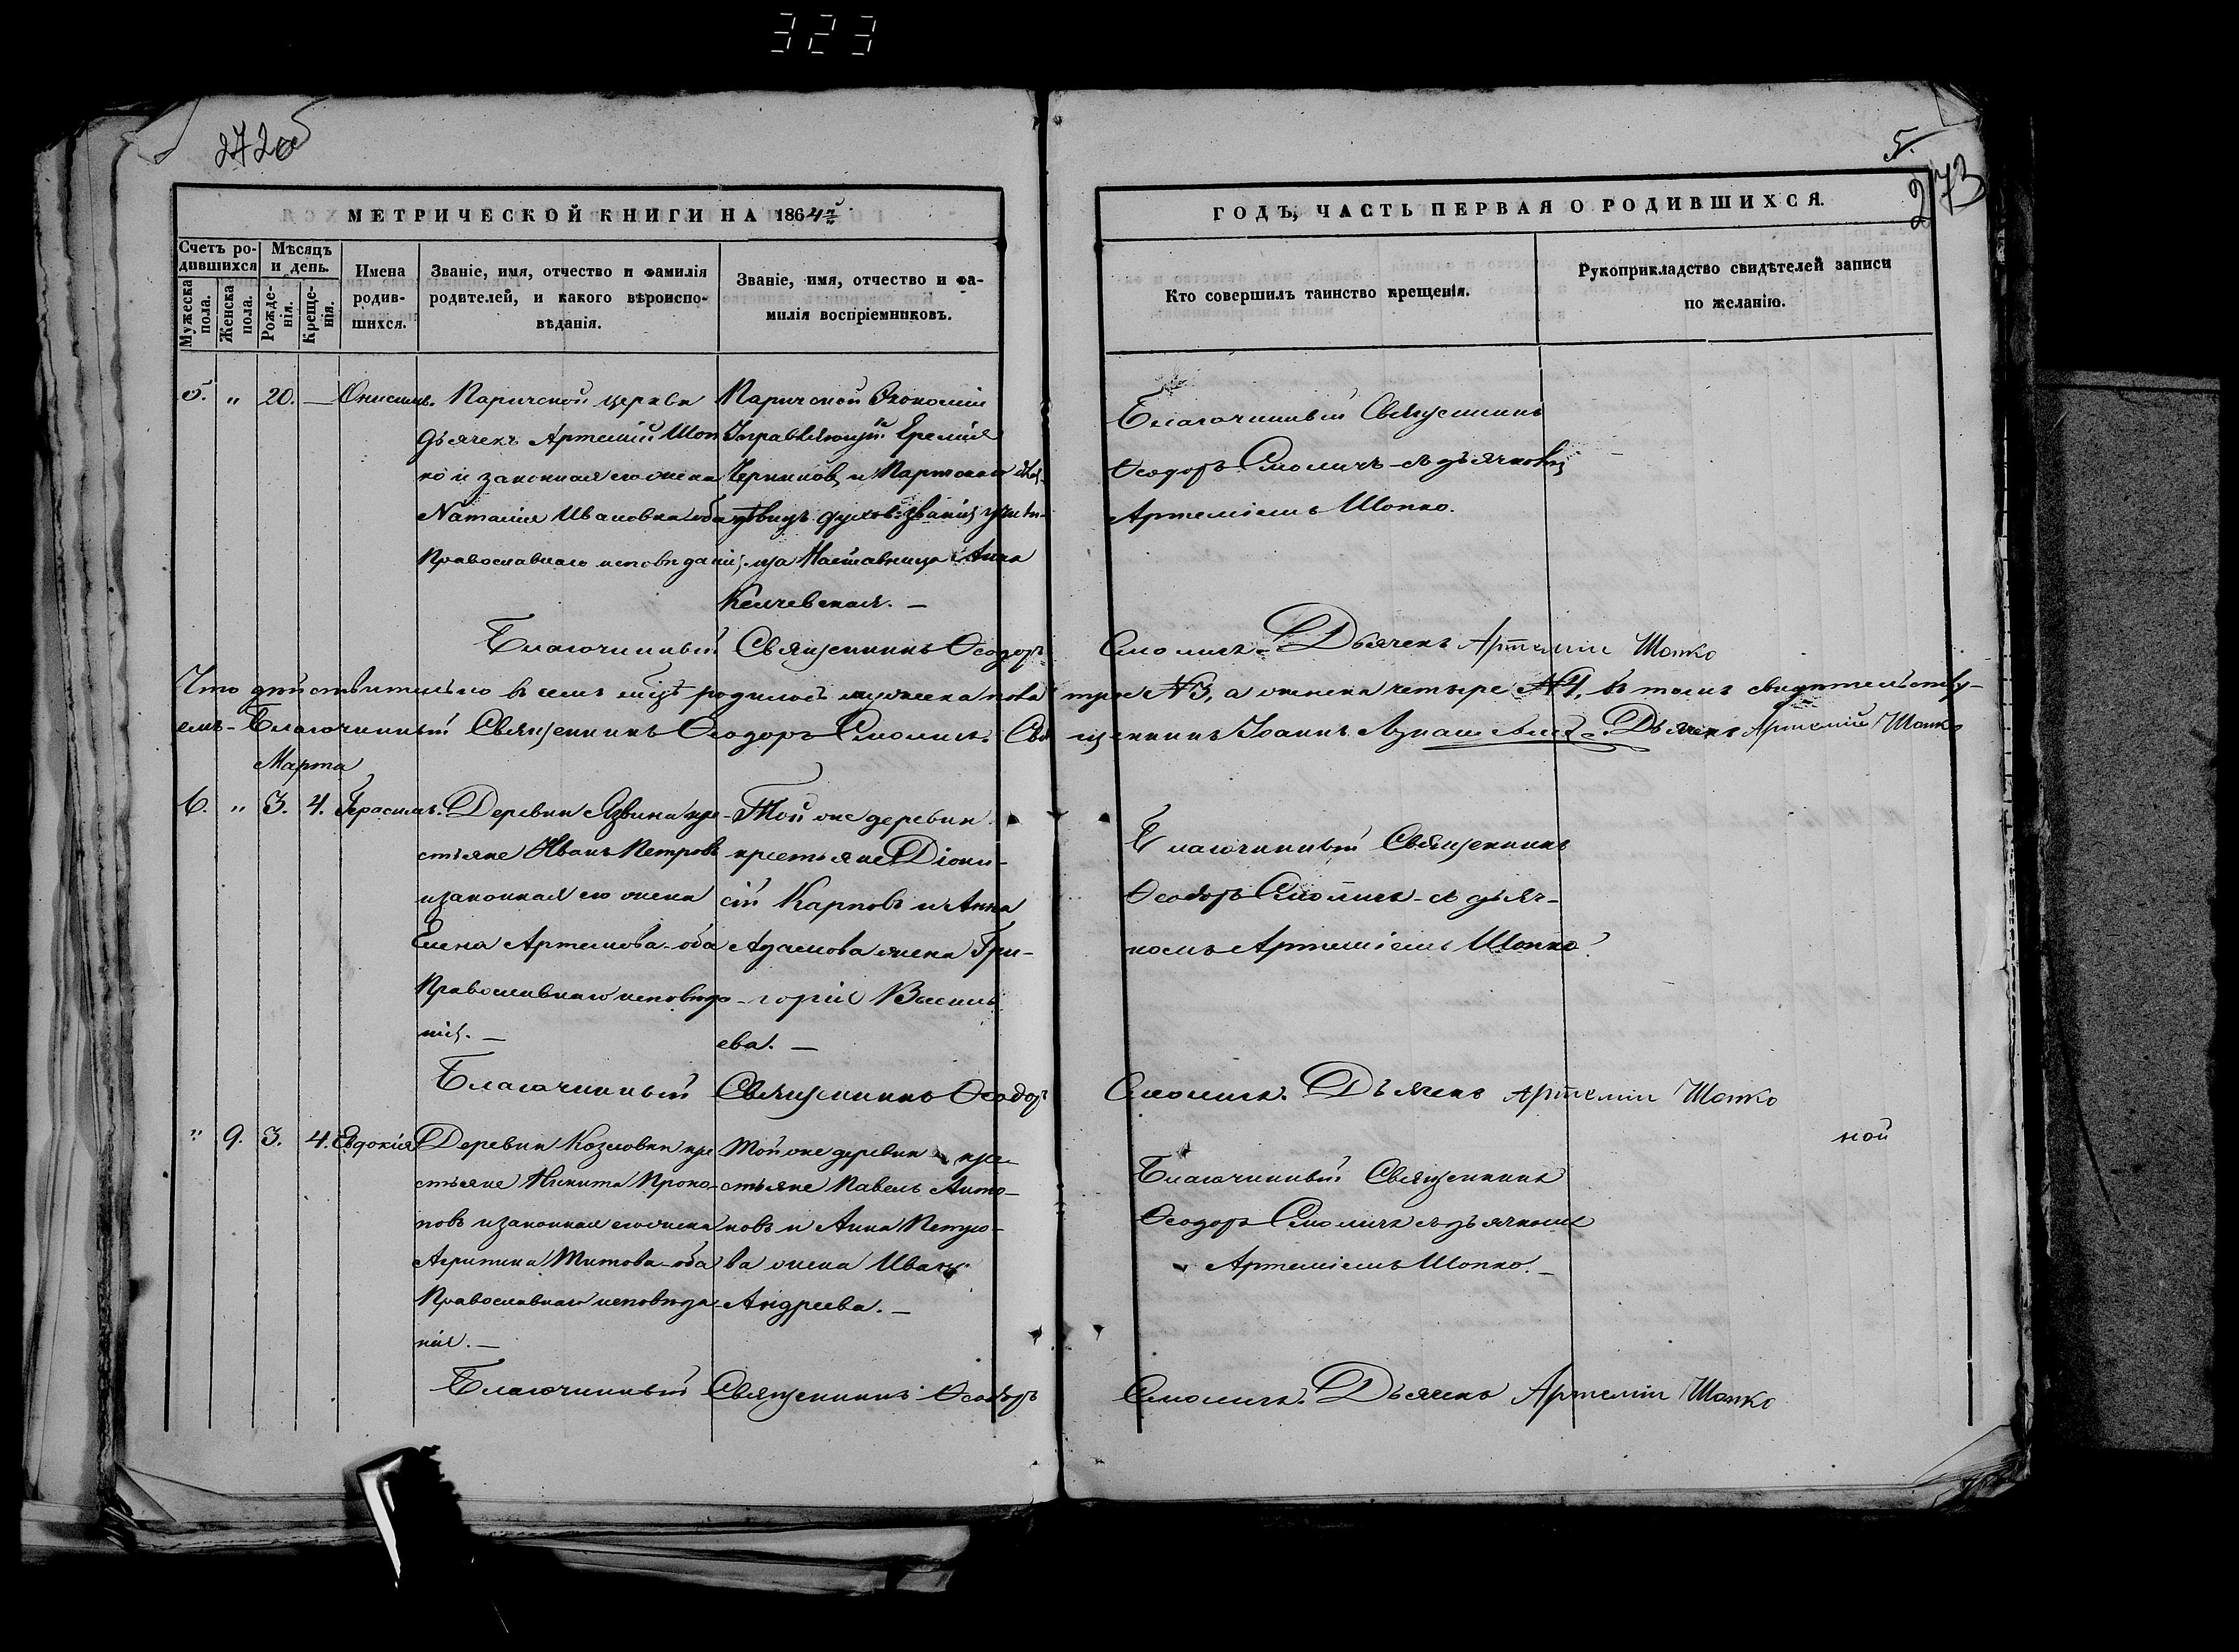 323
272об
5.
273
МЕТРИЧЕСКОЙ КНИГИ НА 1864й
ГОДЪ, ЧАСТЬ ПЕРВАЯ О РОДИВШИХСЯ.
Счетъ ро-
дившихся
Мѣсяцъ
и день.
Мужеска
пола.
Женска
пола.
Рожде-
нія.
Креще-
нія.
Имена
родив-
шихся.
Званіе, имя, отчество и фамилія
родителей, и какого вѣроиспо-
вѣданія.
Званіе, имя, отчество и фа-
милія воспріемниковъ.
Кто совершилъ таинство крещенія.
Рукоприкладство свидѣтелей записи
по желанію.
5. " 20. — Онисимъ.
Паричской церкви
дьячекъ Артемій Шоп
ко и законная его жена
Наталія Ивановна оба
Православнаго исповѣданія.
Паричской Економіи
Управляющій Еремія
Черников и
духов: званія
Наставница Анна
Келчевская. —
Благочинный Священникъ
Ѳеодоръ Смоличъ съ дьячкомъ
Артеміемъ Шопко.
Благочинный Священникъ Ѳеодоръ Смоличъ. Дьячекъ Артемій Шопко
Что дѣйствительно въ семъ м‑цѣ родилось мужеска пола три №3, а женска четыре №4, въ томъ свидѣтельству-
емъ – Благочинный Священникъ Ѳеодоръ Смоличъ. Священникъ Іоаннъ Дьячекъ Артемій Шопко
Марта
6. " 3. 4. Герасимъ.
Деревни Язвина кре-
стьяне Иванъ Петровъ
и законная его жена
Елена Артемова оба
Православнаго исповѣда-
нія. —
Той же деревни
крестьяне Діони-
сій Карповъ и Анна
Адамова жена Гри-
горія Василь
ева. —
Благочинный Священникъ
Ѳеодоръ Смоличъ – съ дьяч-
комъ Артеміемъ Шопко.
Благочинный Священникъ Ѳеодоръ Смоличъ. Дьячекъ Артемій Шопко
" 9. 3. 4. Евдокія
Деревни Козловки кре
стьяне Никита Проко-
повъ и законная его жена
Агрипина Титова оба
Православнаго исповѣда-
нія. —
Той же деревни кре-
стьяне Павелъ Анто-
новъ и Анна Петро-
ва жена Ивана
Андреева. —
ной
Благочинный Священникъ
Ѳеодоръ Смоличъ съ дьячкомъ
Артеміемъ Шопко. —
Благочинный Священникъ Ѳеодоръ Смоличъ. Дьячекъ Артемій Шопко